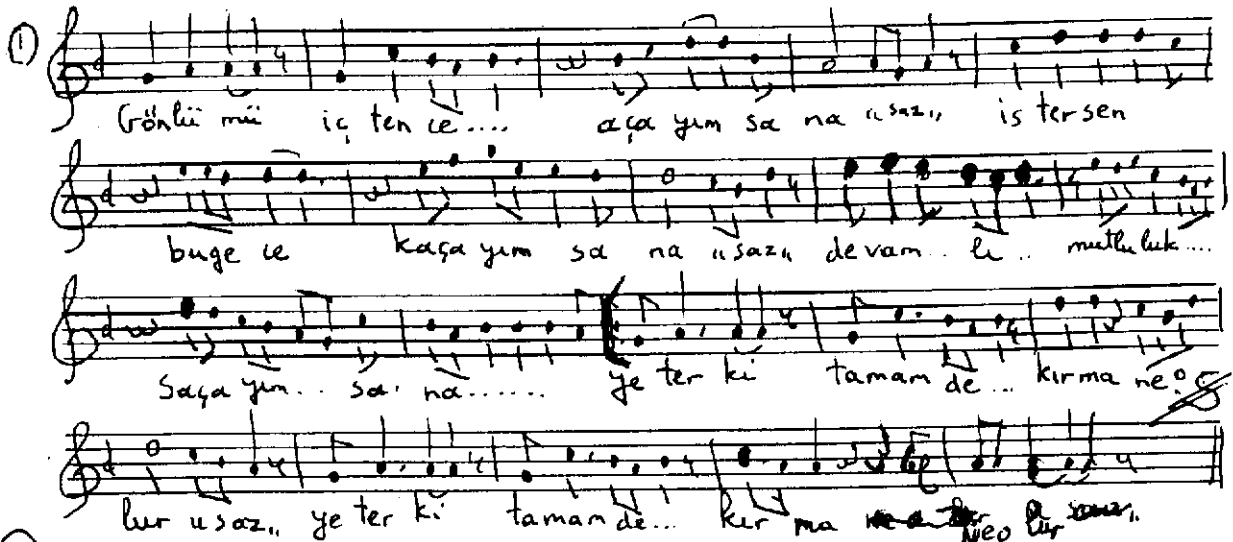 ①
Gönlü mü iç ten ce.... aça yım sa na „saz„ is ter sen
buge ce kaça yım sa na „saz„ devam.. lı.. mutlu luk....
Saça yım.. sa. na...... ye ter ki tamam de... kırma ne o
lur „saz„ ye ter ki tamam de... kır ma Neo lur